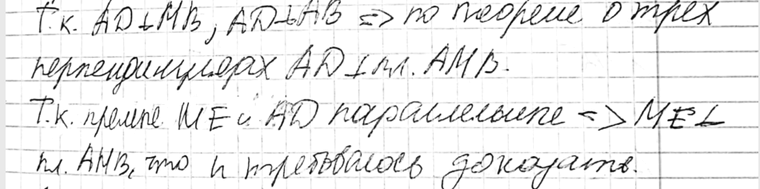 Т.к. AD⊥MB, AD⊥AB => по теореме о трех
перпендикулярах AD⊥пл. AMB.
Т.к. прямые ME и AD параллельные => ME⊥
пл. AMB, что и требовалось доказать.